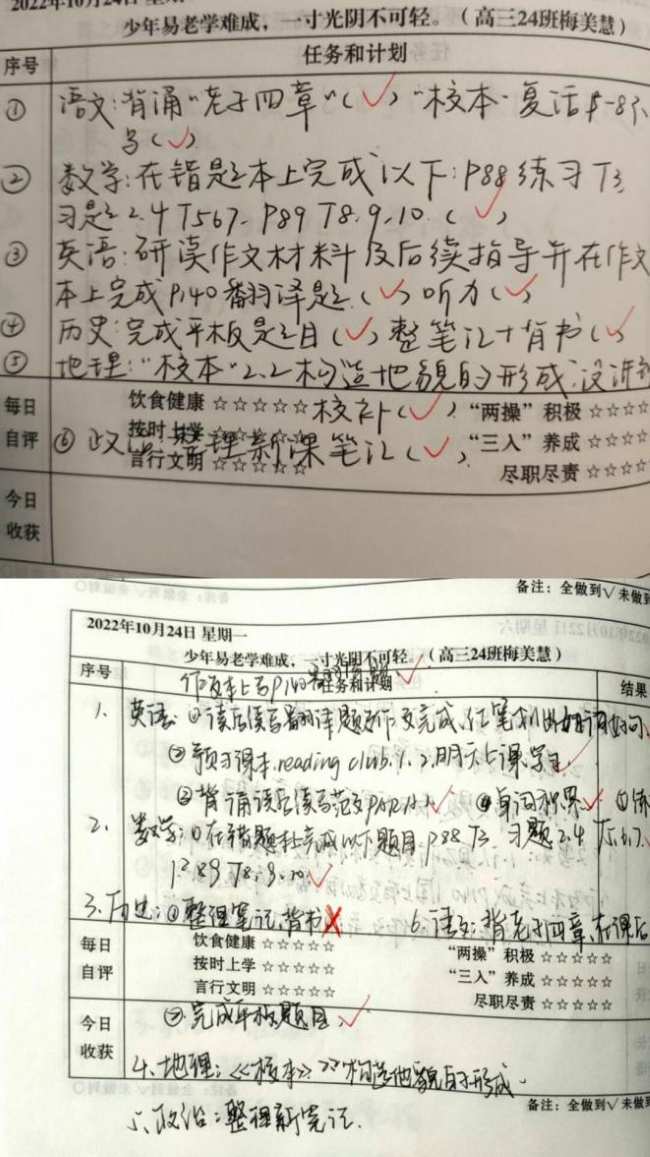 2022年10月24日 星期一
少年易老学难成，一寸光阴不可轻。（高三24班梅美慧）
序号 任务和计划
① 语文：背诵“老子四章”（√）“校本”复活
（√）
② 数学：在错题本上完成以下：P88 练习 T3
习题2.4 T567. P89 T8.9.10.（√）
③ 英语：研读作文材料及后续指导并在作文
本上完成P140翻译题（√）听力（√）
④ 历史：完成平板题目（√）整笔记+背书（√
⑤ 地理：“校本”2.2构造地貌的形成
每日 饮食健康 ☆☆☆☆☆ 校补（√）“两操”积极 ☆☆☆☆
自评 按时上学 ☆☆☆☆☆ “三入”养成 ☆☆☆☆
⑥ 政治：整理新课笔记（√）
言行文明 ☆☆☆☆☆ 尽职尽责 ☆☆☆☆
今日
收获
备注：全做到√ 未做到
2022年10月24日 星期一
少年易老学难成，一寸光阴不可轻。（高三24班梅美慧）
作文本上写P140
序号 任务和计划 结果
1、英语：①读后续写翻译题
②预习课本.reading club.1.2.明天上课
③背诵读后续写范文 √ ④单词积累 √
2、数学：①在错题本上完成以下题目：P88 T3. 习题2.4 T5.6.7.
P89 T8.9.10.√
3.历史：①整理笔记，背书× 6.语文：背老子四章，在课后
每日 饮食健康 ☆☆☆☆☆ “两操”积极 ☆☆☆☆☆
自评 按时上学 ☆☆☆☆☆ “三入”养成 ☆☆☆☆☆
言行文明 ☆☆☆☆☆ 尽职尽责 ☆☆☆☆☆
今日 ②完成平板题目√
收获
4、地理：《校本》构造地貌的形成.
备注：全做到√ 未做
五、政治：整理新笔记.